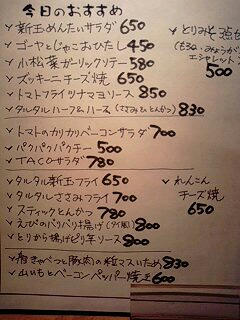 今日のおすすめ
✓新玉めんたいサラダ 650
✓ゴーヤとじゃこおひたし 450
✓小松菜ガーリックソテー 580
✓ズッキーニチーズ焼 650
✓トマトフライツナマヨソース 850
✓タルタルハーフ&ハーフ(ささみ&とんかつ) 830
✓トマトのカリカリベーコンサラダ 700
✓パクパクパクチー 500
✓TACOサラダ 780
✓タルタル新玉フライ 650
✓タルタルささみフライ 700
✓スティックとんかつ 780
✓えびのパリパリ揚げ(タイ風) 900
✓とりから揚げピリ辛ソース 800
✓春きゃべつと豚肉の粒マスいため 830
✓山いもとベーコンペッパー焼 600
✓とりみそ
(もろみ・みょうが
エシャレット)
500
✓れんこん
チーズ焼
650